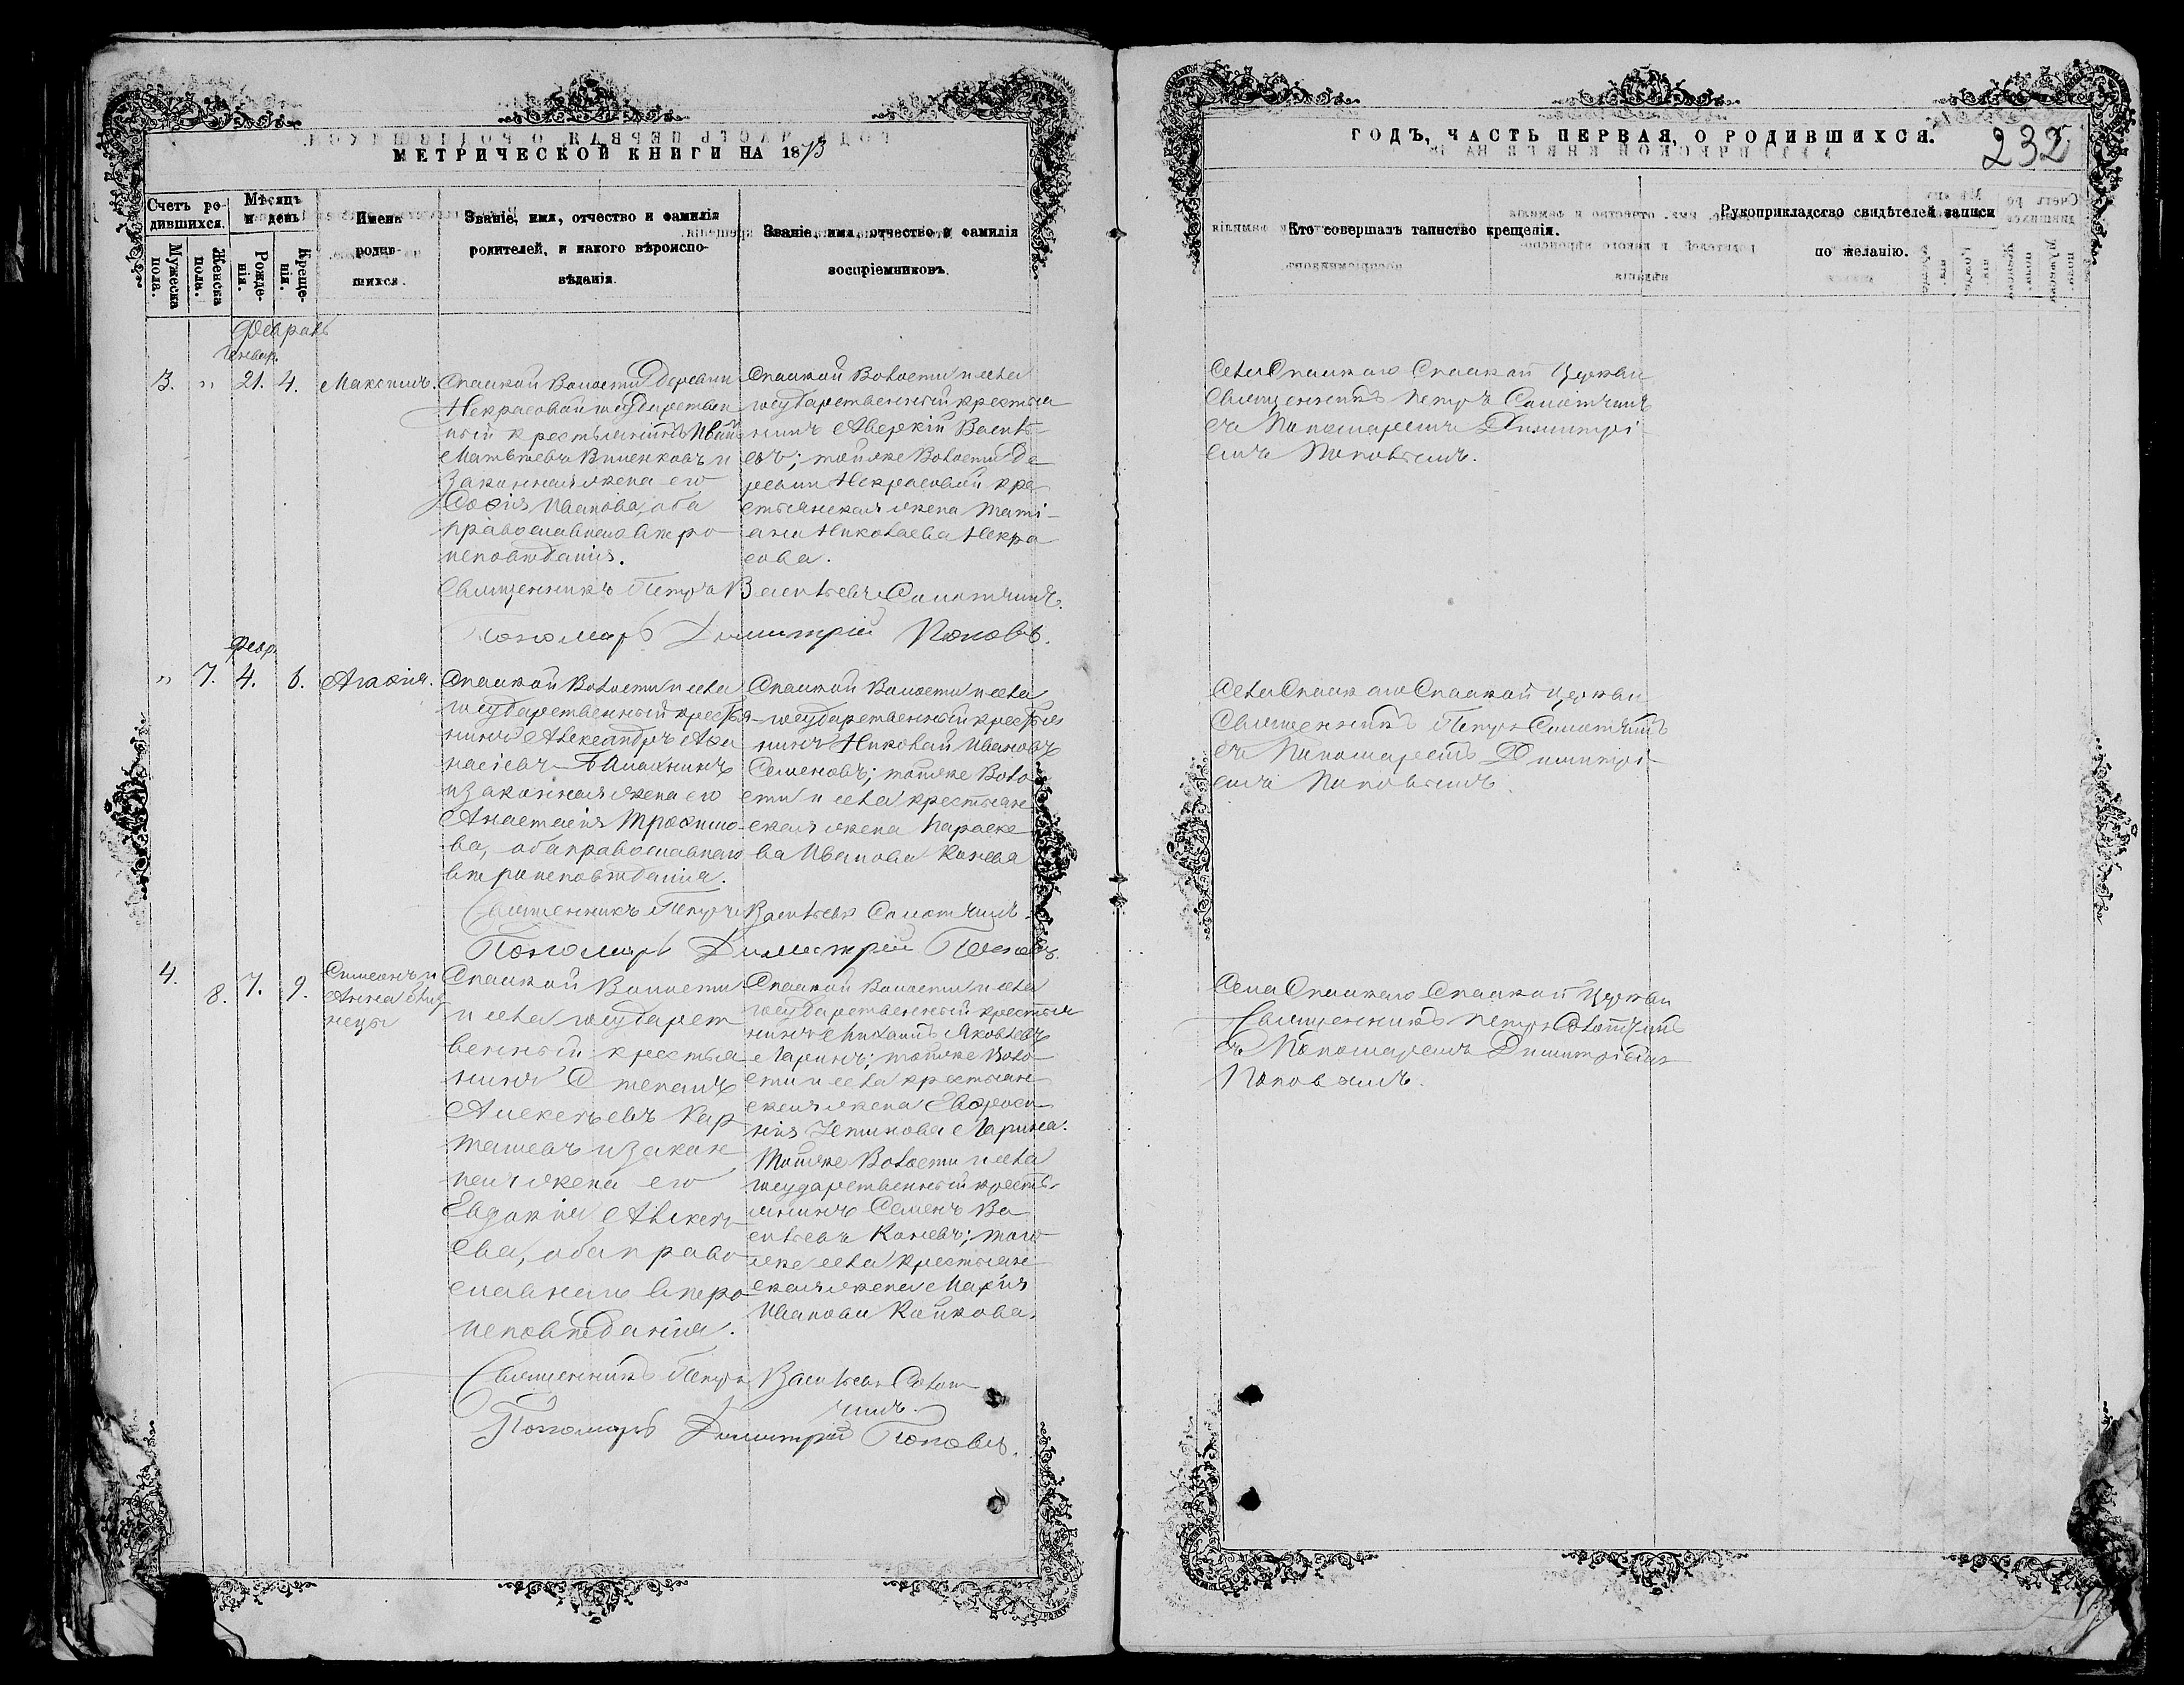 МЕТРИЧЕСКОЙ КНИГИ НА 1873
Счетъ ро-
дившихся.
Мужеска
пола.
Женска
пола.
Мѣсяцъ
и день
Рожде-
нія.
Креще-
нія.
Имена
родив-
шихся.
Званіе, имя, отчество и фамилія
родителей, и какого вѣроиспо-
вѣданія.
Званіе, имя, отчество и фамилія
воспріемниковъ.
Февраль
Генвар.
3. " 21. 4. Максимъ.
Спасской Волости Деревни
Некрасовой государствен
ный крестьянинъ Иванъ
Матвѣевъ и
законная жена его
Софія Иванова, оба
православнаго вѣро
исповѣданія.
Спасской Волости и села
государственный крестья
нинъ Аверкій Василь
евъ; тойже Волости де
ревни Некрасовой кре
стьянская жена Тати-
ана Николаева Некра
сова.
Священникъ Петръ Васильевъ Солотчинъ.
Пономарь Димитрій Поповъ.
Февр.
" 7. 4. 6. Агафія.
Спасской Волости и села
государственный крестья-
нинъ Александръ Афа
насіевъ
и законная жена его
Анастасія Трофимо-
ва, оба православнаго
вѣроисповѣданія.
Спасской Волости и села
государственный крестья
нинъ Николай Ивановъ
Семеновъ; тойже Воло
сти и села крестьян
ская жена Параске
ва Иванова Конева
Священникъ Петръ Васильевъ Солотчинъ.
Пономарь Димитрій Поповъ.
4. 8. 7. 9. Симеонъ и
Анна близ
нецы
Спасской Волости
и села государст
венный крестья
нинъ Степанъ
Алексѣевъ Кар
ташевъ и закон
ная жена его
Евдокія Алексѣ
ева, оба право
славнаго вѣро
исповѣданія.
Спасской Волости и села
государственный крестья
нинъ Михаилъ Яковлевъ
Ларинъ; тойже Воло-
сти и села крестьян
ская жена Евфроси
нія Ларина.
Тойже Волости и села
государственный кресть
янинъ Семенъ Ва
сильевъ Коневъ; того
же села крестьян
ская жена Марія
Иванова Кайкова.
Священникъ Петръ Васильевъ Солот
чинъ.
Пономарь Димитрій Поповъ.
ГОДЪ, ЧАСТЬ ПЕРВАЯ, О РОДИВШИХСЯ.
232
Кто совершалъ таинство крещенія.
Рукоприкладство свидѣтелей записи
по желанію.
Села Спасскаго Спасской Церкви
Священникъ Петръ Солотчинъ
съ Пономаремъ Димитрі-
емъ Поповымъ.
Села Спасскаго Спасской Церкви
Священникъ Петръ Солотчинъ
съ Пономаремъ Димитрі-
емъ Поповымъ.
Села Спасскаго Спасской Церкви
Священникъ Петръ Солотчинъ
съ Пономаремъ Димитріемъ
Поповымъ.